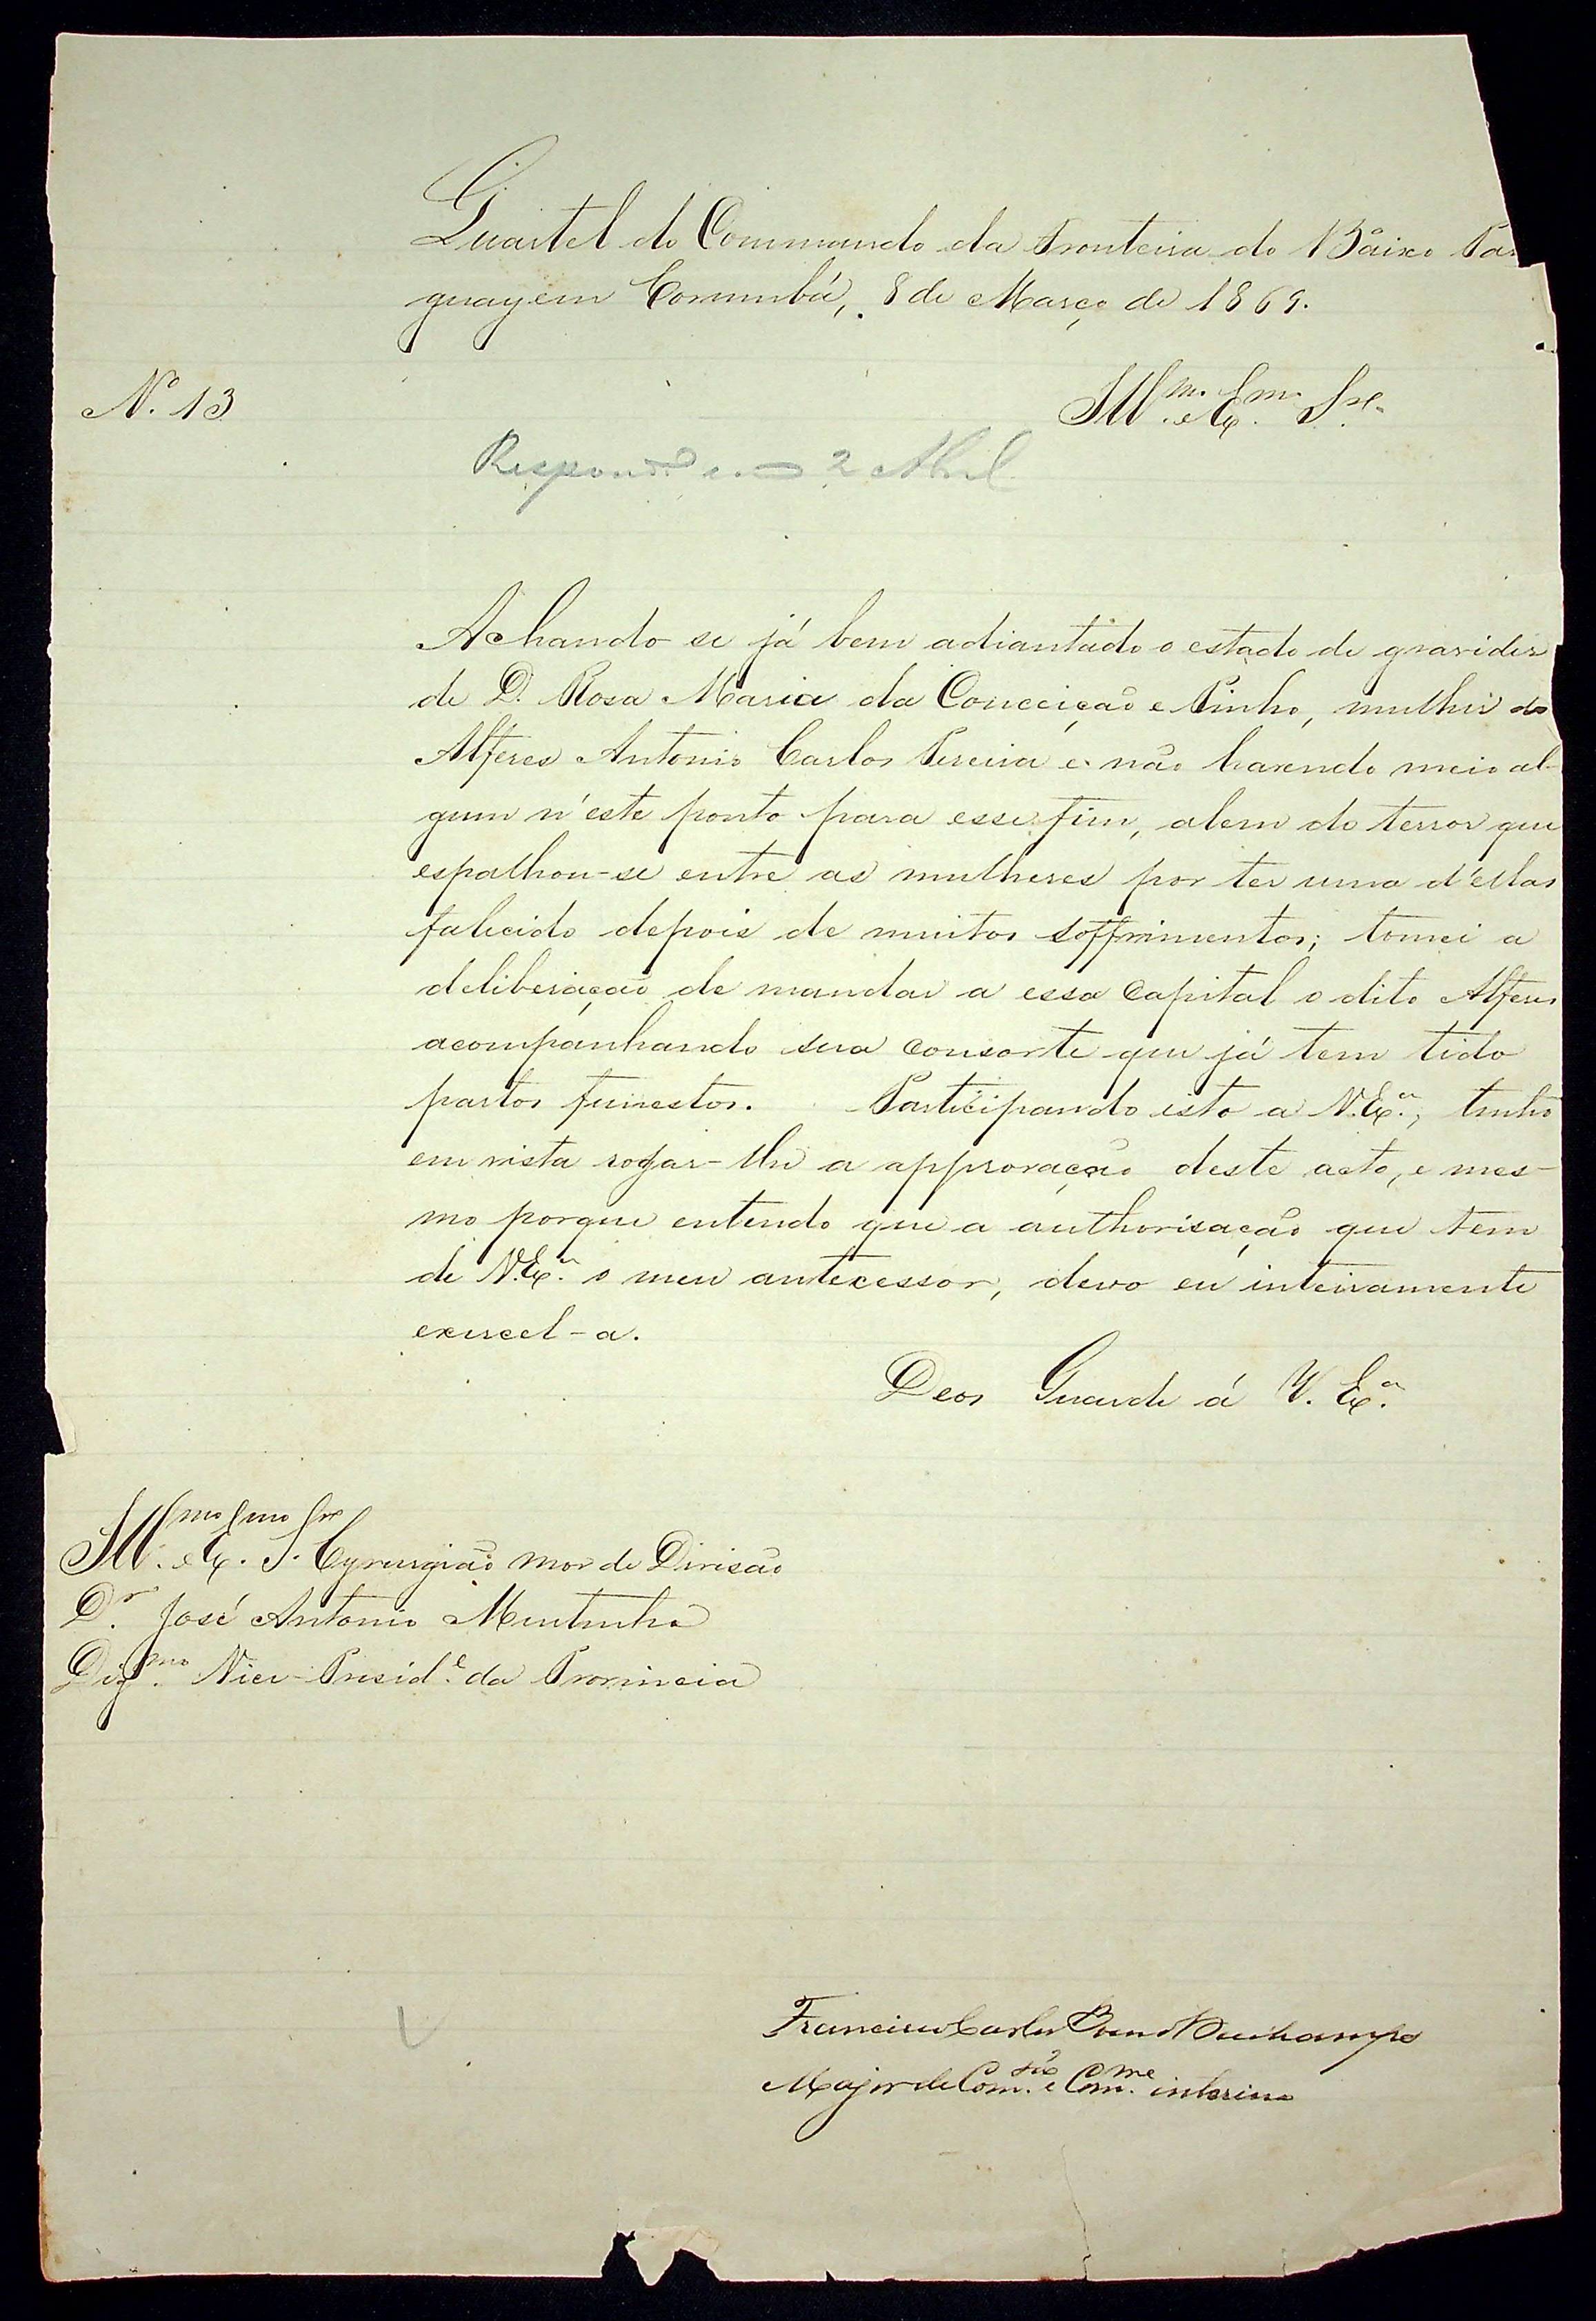 Quartel do Commando da Fronteira do Baixo Par
guay em Corumbá, 8 de Março de 1869.
Nº. 13
Ill.mo e Ex.mo Snr.
Respond.º em 2 Abril
Achando se já bem adiantado o estado de gravidez
de D. Rosa Maria da Conceição e Pinho, mulher do
Alferes Antonio Carlos Pereira e não havendo meio al-
gum n'este ponto para esse fim, alem do terror que
espalhou-se entre as mulheres por ter uma d'ellas
falecido depois de muitos soffrimentos; tomei a
deliberação de mandar a essa Capital o dito Alferes
acompanhando sua consorte que já tem tido
partos funestos. Participando isto a V. Ex.ª, tenho
em vista rogar-lhe a approvação deste acto, e mes-
mo porque entendo que a authorisação que tem
de V. Ex.ª o meu antecessor, devo eu inteiramente
exercel-a.
Deos Guarde á V. Ex.ª
Ill.mo e Ex.mo Snr. Cyrurgião mor de Divisão
Dr. José Antonio Murtinho
Dig.mo Vice-Presid.e da Provincia
Francisco Carlos Bueno Deschamps
Major de Com.são e Com.me interino